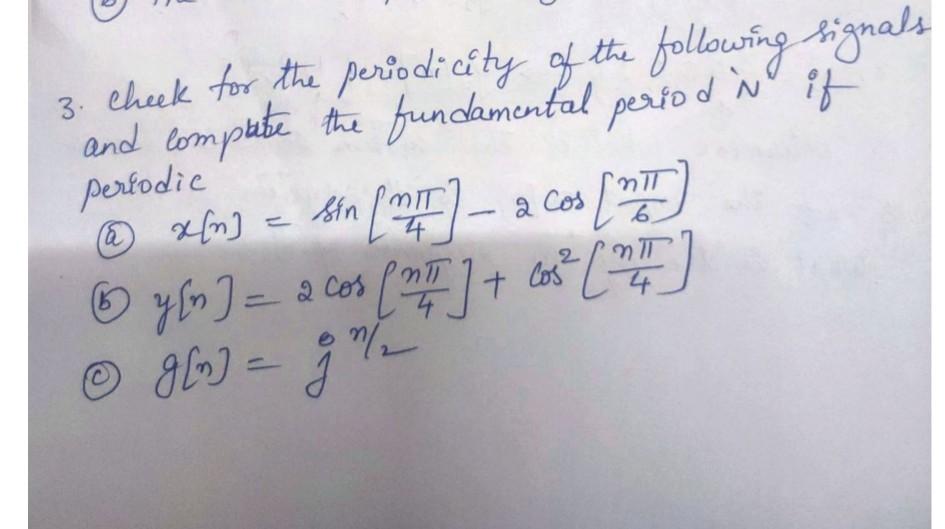 3. Check for the periodicity of the following signals
and compute the fundamental period 'N' if
periodic
(a) x[n] = sin [nπ/4] - 2 cos [nπ/6]
(b) y[n] = 2 cos [nπ/4] + cos² [nπ/4]
(c) g[n] = j^n/2